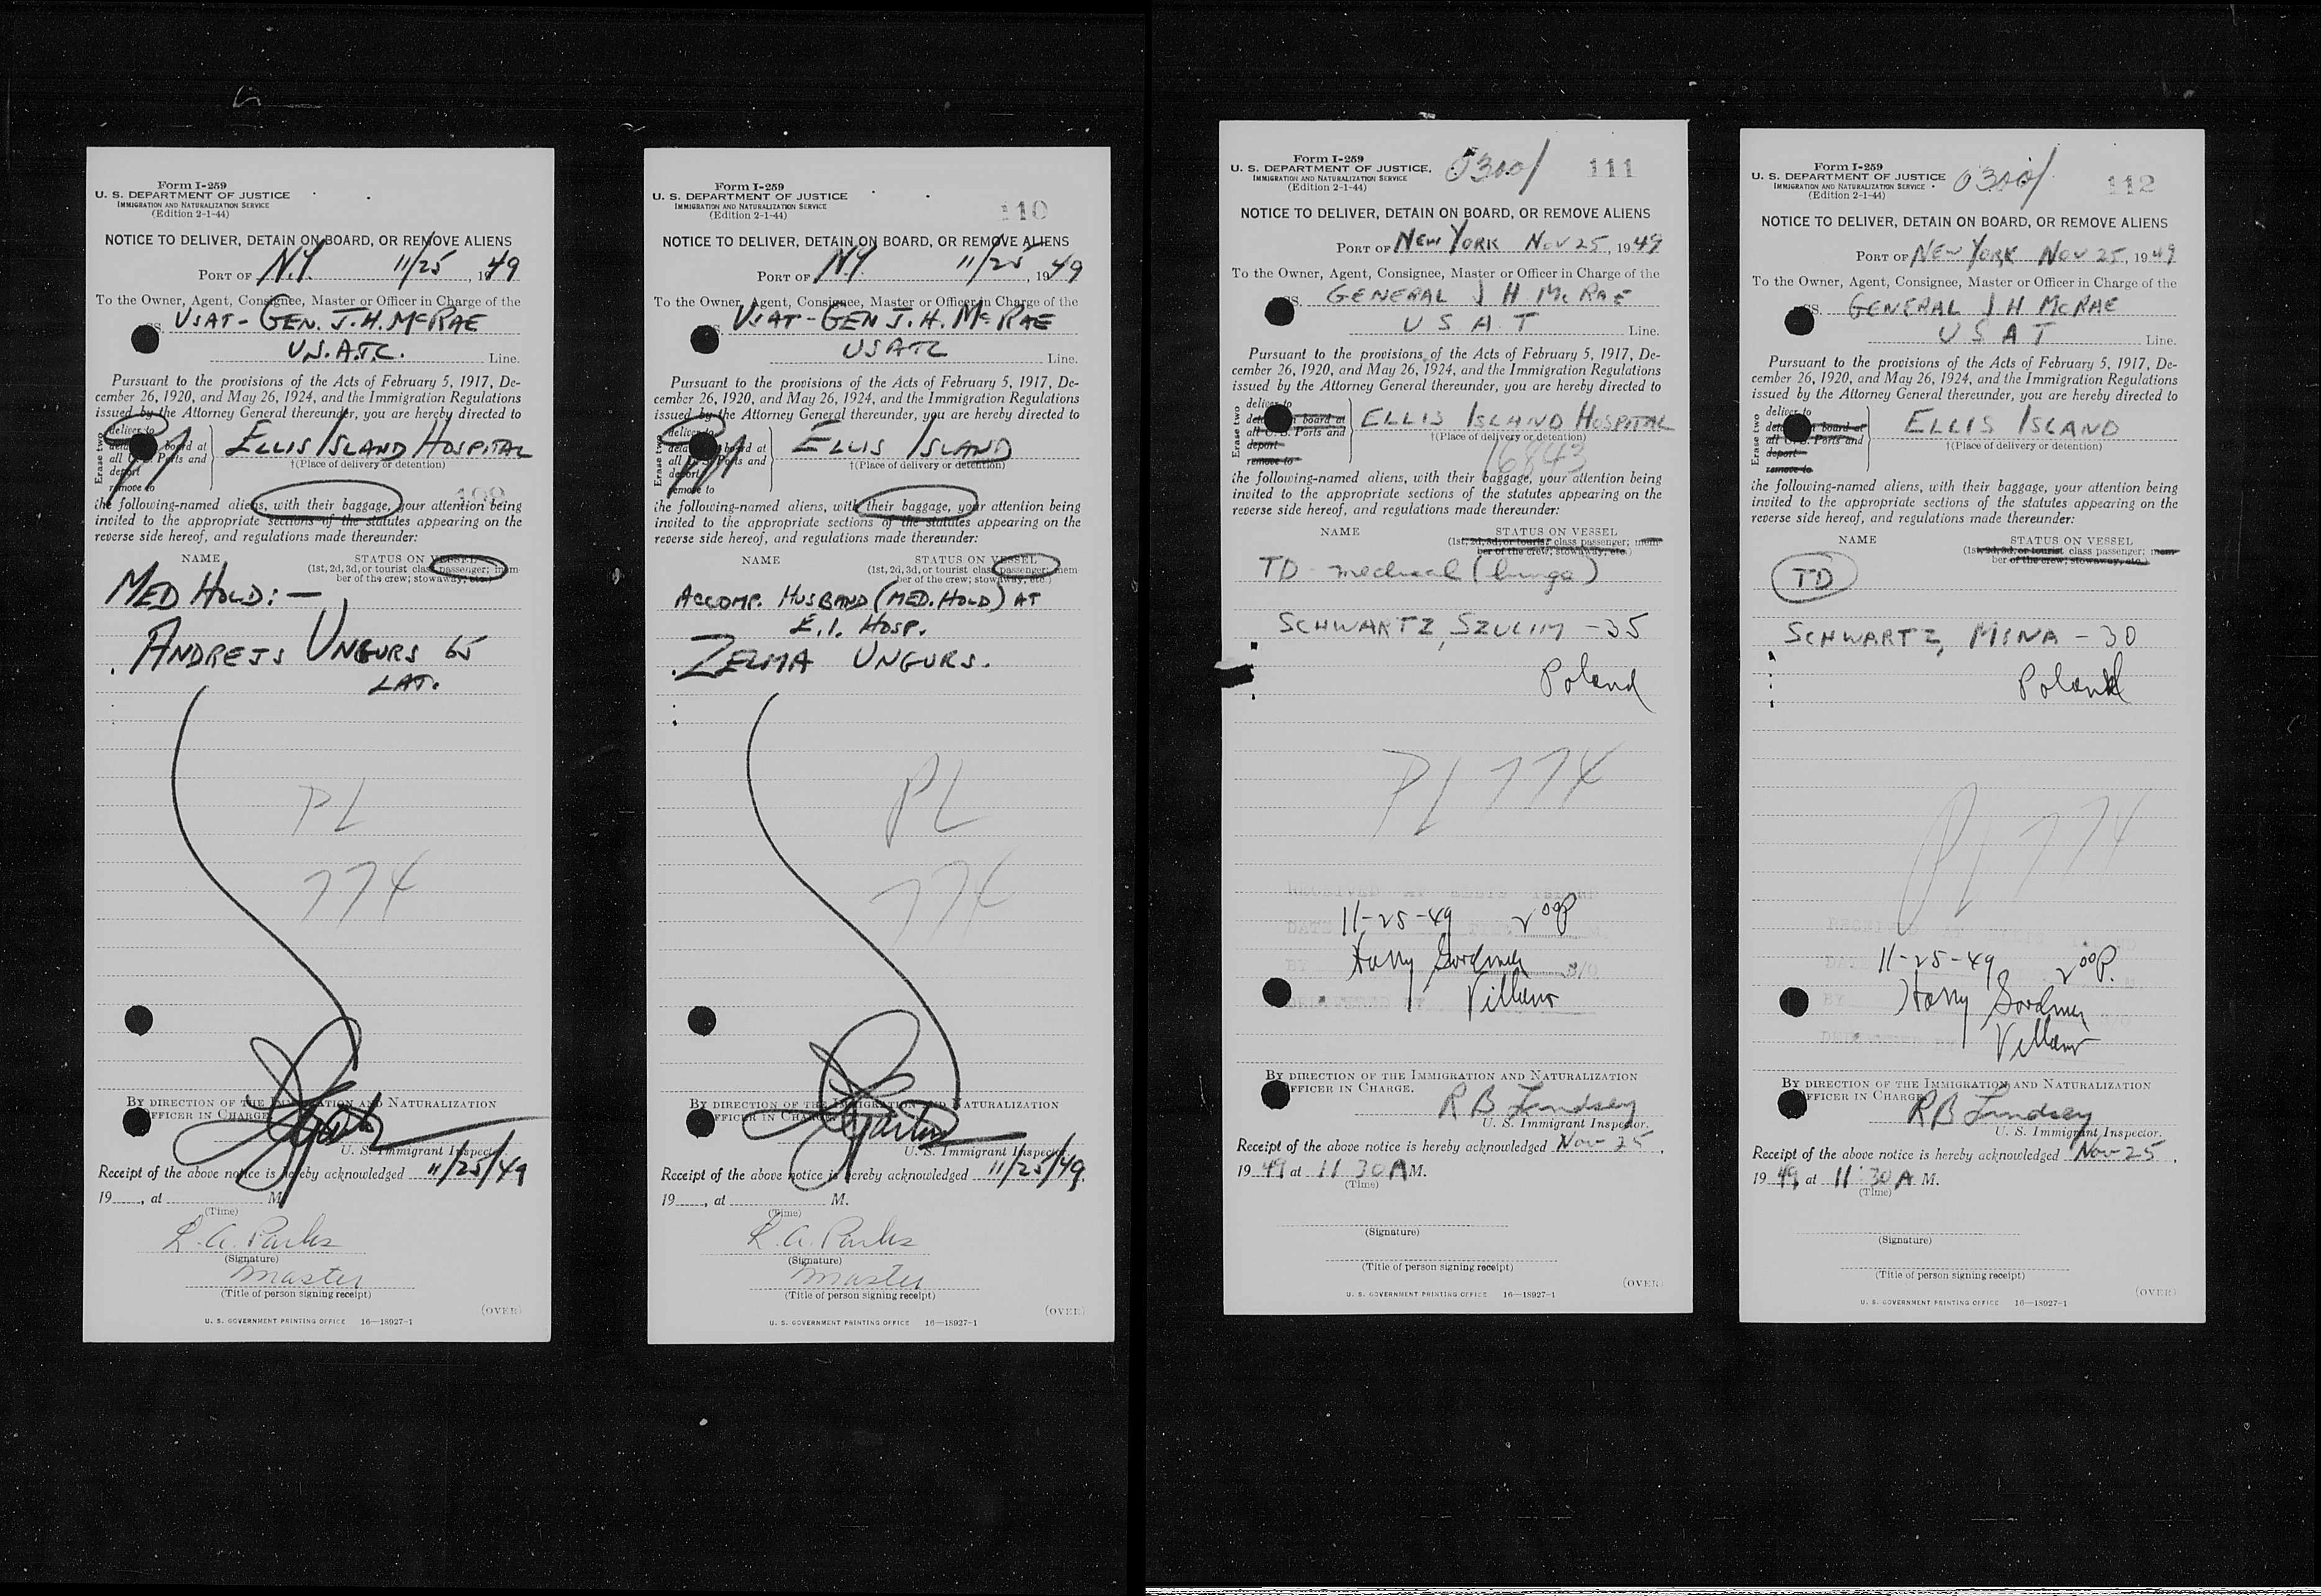 Form I-259
U. S. DEPARTMENT OF JUSTICE
IMMIGRATION AND NATURALIZATION SERVICE
(Edition 2-1-44)
NOTICE TO DELIVER, DETAIN ON BOARD, OR REMOVE ALIENS
PORT OF N.Y. 11/25, 1949
To the Owner, Agent, Consignee, Master or Officer in Charge of the
SS. USAT - GEN. J. H. McRAE
U.S.A.T.C. Line.
Pursuant to the provisions of the Acts of February 5, 1917, De-
cember 26, 1920, and May 26, 1924, and the Immigration Regulations
issued by the Attorney General thereunder, you are hereby directed to
Erase two
deliver to
board at
all U. S. Ports and
deport
remove to
ELLIS ISLAND HOSPITAL
†(Place of delivery or detention)
109
the following-named aliens, with their baggage, your attention being
invited to the appropriate sections of the statutes appearing on the
reverse side hereof, and regulations made thereunder:
NAME STATUS ON VESSEL
(1st, 2d, 3d, or tourist class passenger; mem
ber of the crew; stowaway, etc.)
MED HOLD: —
ANDREJS UNGURS 65
LAT.
PL
774
BY DIRECTION OF THE IMMIGRATION AND NATURALIZATION
OFFICER IN CHARGE.
U. S. Immigrant Inspector.
Receipt of the above notice is hereby acknowledged 11/25/49
19____, at ____ M.
(Time)
L. A. Parks
(Signature)
Master
(Title of person signing receipt)
(OVER)
U. S. GOVERNMENT PRINTING OFFICE 16—18927-1
Form I-259
U. S. DEPARTMENT OF JUSTICE
IMMIGRATION AND NATURALIZATION SERVICE
(Edition 2-1-44)
110
NOTICE TO DELIVER, DETAIN ON BOARD, OR REMOVE ALIENS
PORT OF N.Y. 11/25 1949
To the Owner, Agent, Consignee, Master or Officer in Charge of the
SS. USAT - GEN J. H. McRAE
USATC Line.
Pursuant to the provisions of the Acts of February 5, 1917, De-
cember 26, 1920, and May 26, 1924, and the Immigration Regulations
issued by the Attorney General thereunder, you are hereby directed to
Erase two
deliver to
board at
all U. S. Ports and
deport
remove to
ELLIS ISLAND
†(Place of delivery or detention)
the following-named aliens, with their baggage, your attention being
invited to the appropriate sections of the statutes appearing on the
reverse side hereof, and regulations made thereunder:
NAME STATUS ON VESSEL
(1st, 2d, 3d, or tourist class passenger; mem
ber of the crew; stowaway, etc.)
ACCOMP. HUSBAND (MED. HOLD) AT
E.I. HOSP.
ZELMA UNGURS.
PL
774
BY DIRECTION OF THE IMMIGRATION AND NATURALIZATION
OFFICER IN CHARGE.
U. S. Immigrant Inspector.
Receipt of the above notice is hereby acknowledged 11/25/49.
19____, at ____ M.
(Time)
L. A. Parks
(Signature)
Master
(Title of person signing receipt)
(OVER)
U. S. GOVERNMENT PRINTING OFFICE 16—18927-1
Form I-259
U. S. DEPARTMENT OF JUSTICE,
IMMIGRATION AND NATURALIZATION SERVICE
(Edition 2-1-44)
0300/ 111
NOTICE TO DELIVER, DETAIN ON BOARD, OR REMOVE ALIENS
PORT OF NEW YORK NOV 25, 1949
To the Owner, Agent, Consignee, Master or Officer in Charge of the
SS. GENERAL J H McRAE
U S A T Line.
Pursuant to the provisions of the Acts of February 5, 1917, De-
cember 26, 1920, and May 26, 1924, and the Immigration Regulations
issued by the Attorney General thereunder, you are hereby directed to
Erase two
deliver to
board at
all U. S. Ports and
deport
remove to
ELLIS ISLAND HOSPITAL
†(Place of delivery or detention)
16843
the following-named aliens, with their baggage, your attention being
invited to the appropriate sections of the statutes appearing on the
reverse side hereof, and regulations made thereunder:
NAME STATUS ON VESSEL
(1st, 2d, 3d, or tourist class passenger; mem
ber of the crew; stowaway, etc.)
TD - medical (lungs)
SCHWARTZ, SZULIM - 35
Poland
PL 774
11-25-49 2 00 P
Harry
BY DIRECTION OF THE IMMIGRATION AND NATURALIZATION
OFFICER IN CHARGE.
R B Lindsey
U. S. Immigrant Inspector.
Receipt of the above notice is hereby acknowledged Nov 25,
1949 at 11 30 A M.
(Time)
(Signature)
(Title of person signing receipt)
(OVER)
U. S. GOVERNMENT PRINTING OFFICE 16—18927-1
Form I-259
U. S. DEPARTMENT OF JUSTICE
IMMIGRATION AND NATURALIZATION SERVICE
(Edition 2-1-44)
0300/ 112
NOTICE TO DELIVER, DETAIN ON BOARD, OR REMOVE ALIENS
PORT OF NEW YORK NOV 25, 1949
To the Owner, Agent, Consignee, Master or Officer in Charge of the
SS. GENERAL J H McRAE
U S A T Line.
Pursuant to the provisions of the Acts of February 5, 1917, De-
cember 26, 1920, and May 26, 1924, and the Immigration Regulations
issued by the Attorney General thereunder, you are hereby directed to
Erase two
deliver to
board at
all U. S. Ports and
deport
remove to
ELLIS ISLAND
†(Place of delivery or detention)
the following-named aliens, with their baggage, your attention being
invited to the appropriate sections of the statutes appearing on the
reverse side hereof, and regulations made thereunder:
NAME STATUS ON VESSEL
(1st, 2d, 3d, or tourist class passenger; mem
ber of the crew; stowaway, etc.)
TD
SCHWARTZ, MINA - 30
Poland
PL 774
11-25-49 2 00 P.
Harry
BY DIRECTION OF THE IMMIGRATION AND NATURALIZATION
OFFICER IN CHARGE
RB Lindsey
U. S. Immigrant Inspector.
Receipt of the above notice is hereby acknowledged Nov 25,
1949 at 11:30 A M.
(Time)
(Signature)
(Title of person signing receipt)
(OVER)
U. S. GOVERNMENT PRINTING OFFICE 16—18927-1